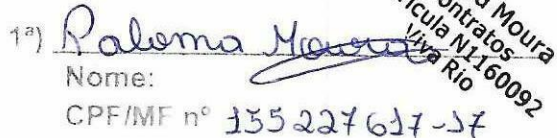 1ª) Paloma Moura
Nome:
CPF/MF nº 155 227 617-17
Moura
Contratos
Matrícula N1160092
Viva Rio